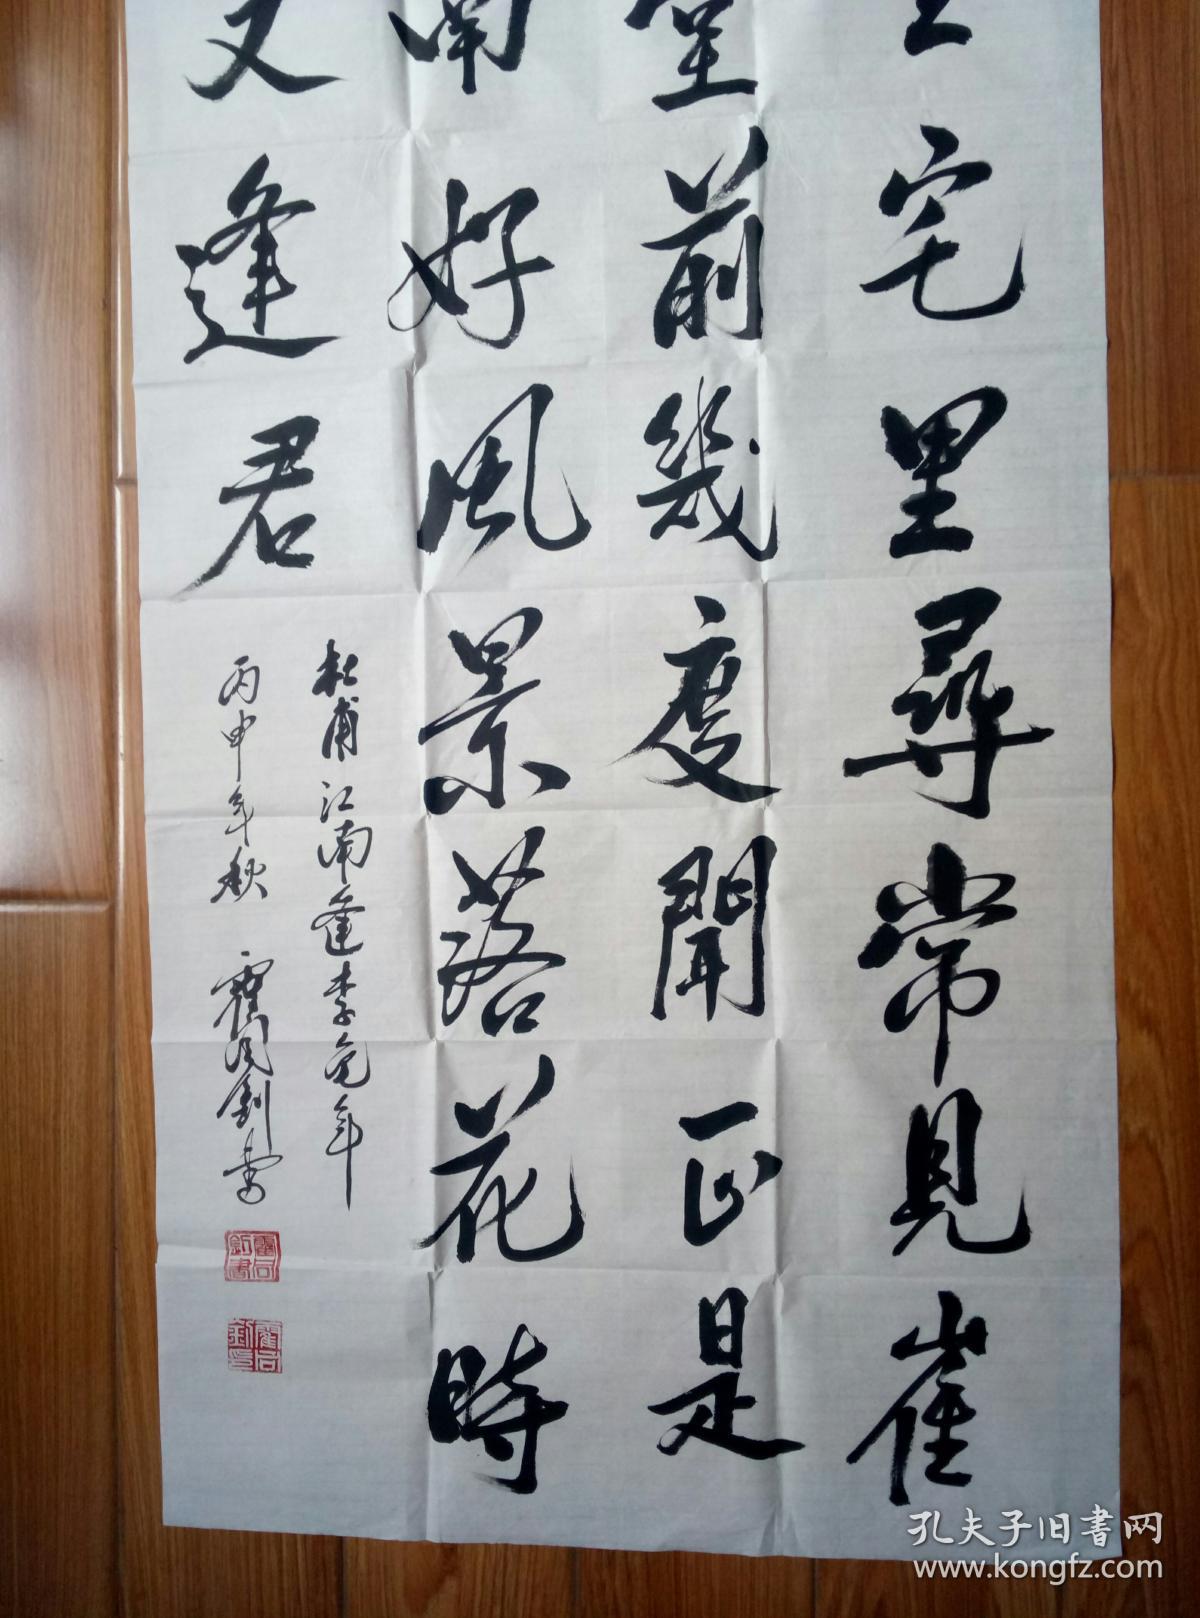 王宅里尋常見崔
堂前幾度聞正是
南好風景落花時
又逢君
杜甫江南逢李龟年
丙申年秋 霍同钊书
孔夫子旧書网
www.kongfz.com